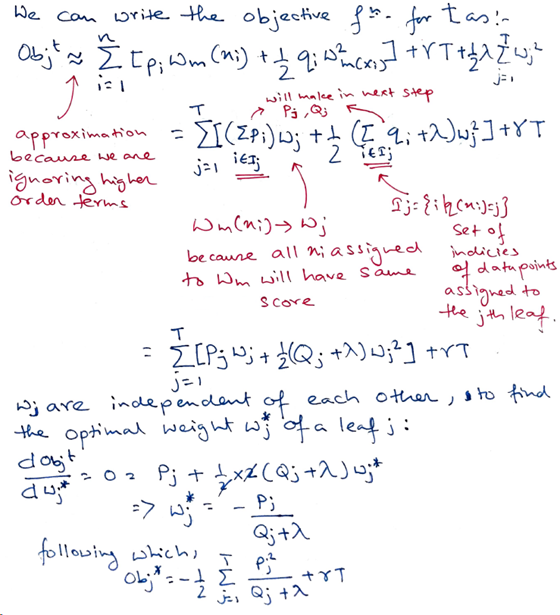 We can write the objective fⁿ. for t as:-
Obj^t ≈ Σ_{i=1}^{n} [p_i w_m(x_i) + 1/2 q_i w²_{m(x_i)}] + γT + 1/2 λ Σ_{j=1}^{T} w_j²
will make in next step
P_j, Q_j
= Σ_{j=1}^{T} [(Σ_{i∈I_j} p_i) w_j + 1/2 (Σ_{i∈I_j} q_i + λ) w_j²] + γT
approximation
because we are
ignoring higher
order terms
w_m(x_i) → w_j
because all x_i assigned
to w_m will have same
score
I_j = {i|q(x_i)=j}
set of
indicies
of datapoints
assigned to
the jth leaf.
= Σ_{j=1}^{T} [P_j w_j + 1/2 (Q_j + λ) w_j²] + γT
w_j are independent of each other, so to find
the optimal weight w_j* of a leaf j:
dobj^t/dw_j* = 0 = P_j + 1/2 × 2 (Q_j + λ) w_j*
=> w_j* = - P_j/(Q_j + λ)
following which,
Obj* = - 1/2 Σ_{j=1}^{T} P_j²/(Q_j + λ) + γT